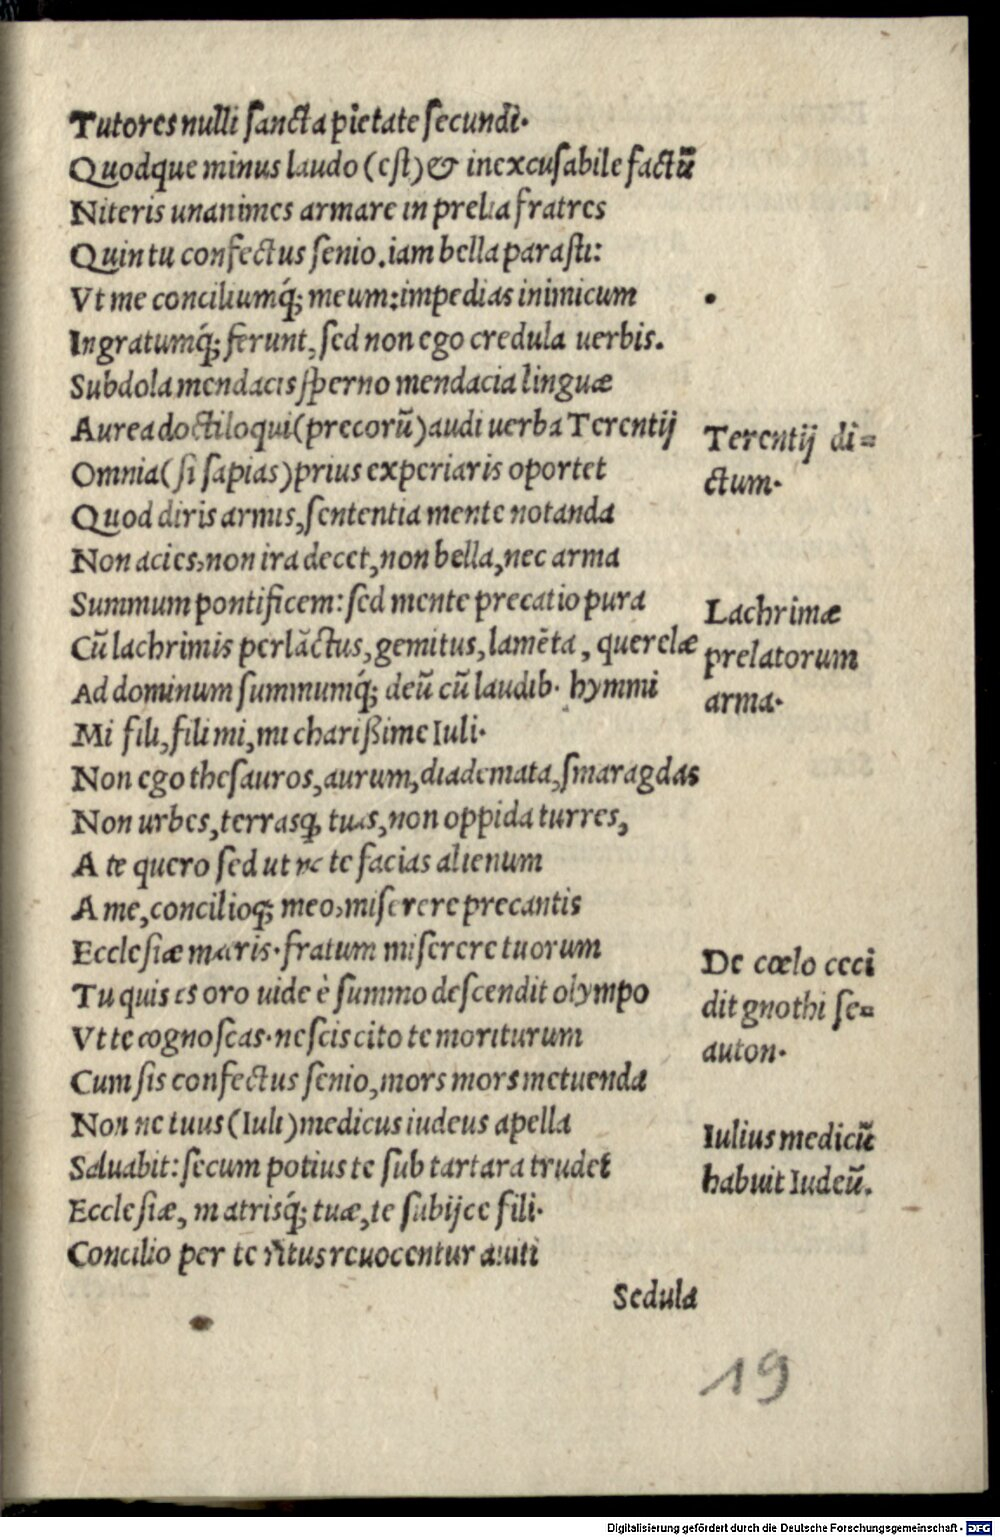 Tutores nulli sancta pietate secundi·
Quodque minus laudo (est) & inexcusabile factū
Niteris unanimes armare in prelia fratres
Quin tu confectus senio. iam bella parasti:
Vt me conciliumq́; meum: impedias inimicum
Ingratumq́; ferunt, sed non ego credula uerbis.
Subdola mendacis sperno mendacia linguæ
Aurea doctiloqui (precorū) audi uerba Terentij
Terentij di=
ctum·
Omnia (si sapias) prius experiaris oportet
Quod diris armis, sententia mente notanda
Non acies, non ira decet, non bella, nec arma
Summum pontificem: sed mente precatio pura
Cū lachrimis perlāctus, gemitus, lamēta, querelæ
Lachrimæ
prelatorum
arma·
Ad dominum summumq́; deū cū laudib· hymmi
Mi fili, fili mi, mi charißime Iuli·
Non ego thesauros, aurum, diademata, smaragdas
Non urbes, terrasq; tuas, non oppida turres,
A te quero sed ut ne te facias alienum
A me, concilioq; meo, miserere precantis
Ecclesiæ matris· fratum miserere tuorum
Tu quis es oro uide è summo descendit olympo
De cœlo ceci
dit gnothi se=
auton·
Vt te cognoscas· nescis cito te moriturum
Cum sis confectus senio, mors mors metuenda
Non ne tuus (Iuli) medicus iudeus apella
Iulius medicū
habuit Iudeū.
Saluabit: secum potius te sub tartara trudet
Ecclesiæ, matrisq́; tuæ, te subijce fili·
Concilio per te ritus reuocentur auiti
Sedula
19
Digitalisierung gefördert durch die Deutsche Forschungsgemeinschaft - DFG